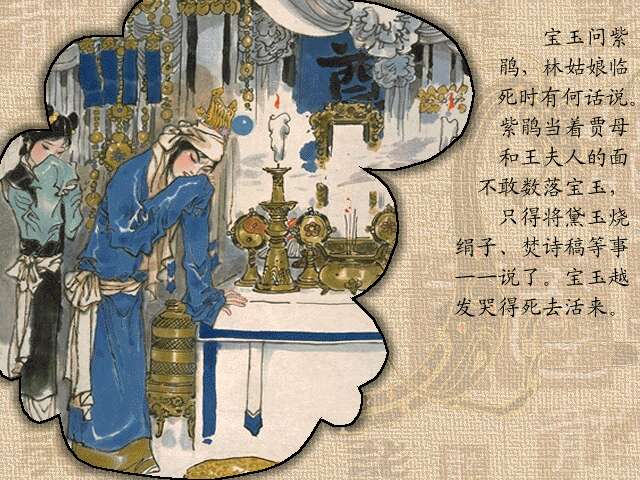 宝玉问紫
鹃、林姑娘临
死时有何话说。
紫鹃当着贾母
和王夫人的面
不敢数落宝玉，
只得将黛玉烧
绢子、焚诗稿等事
一一说了。宝玉越
发哭得死去活来。